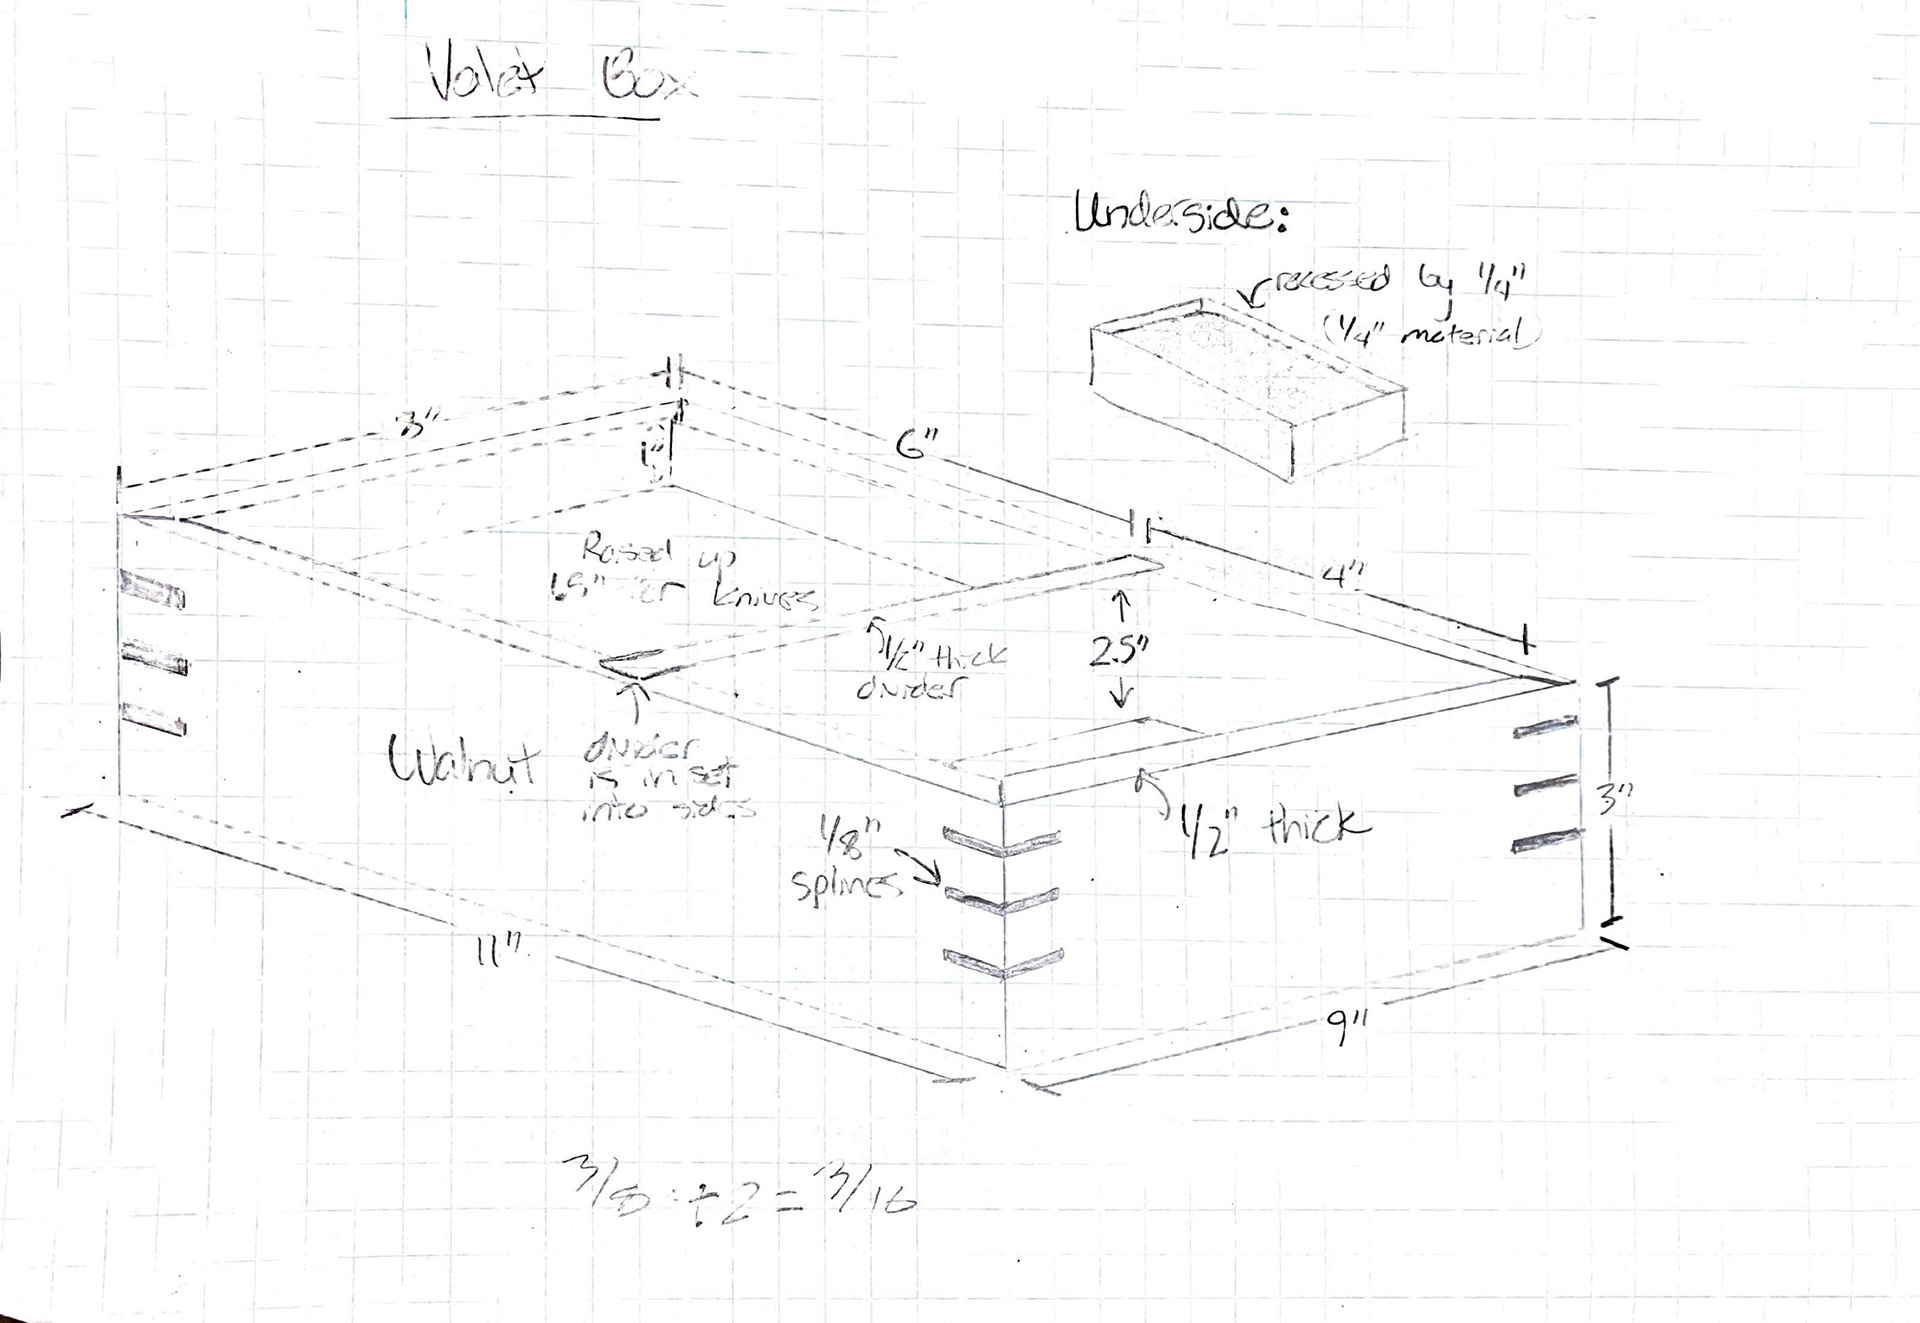 Valet Box
Underside:
recessed by 1/4"
(1/4" material)
8"
6"
1"
4"
Raised up
1.5" for knives
1/2" thick
divider
2.5"
Walnut
divider
is inset
into sides
1/8"
splines
1/2" thick
3"
11"
9"
3/8 ÷ 2 = 3/16